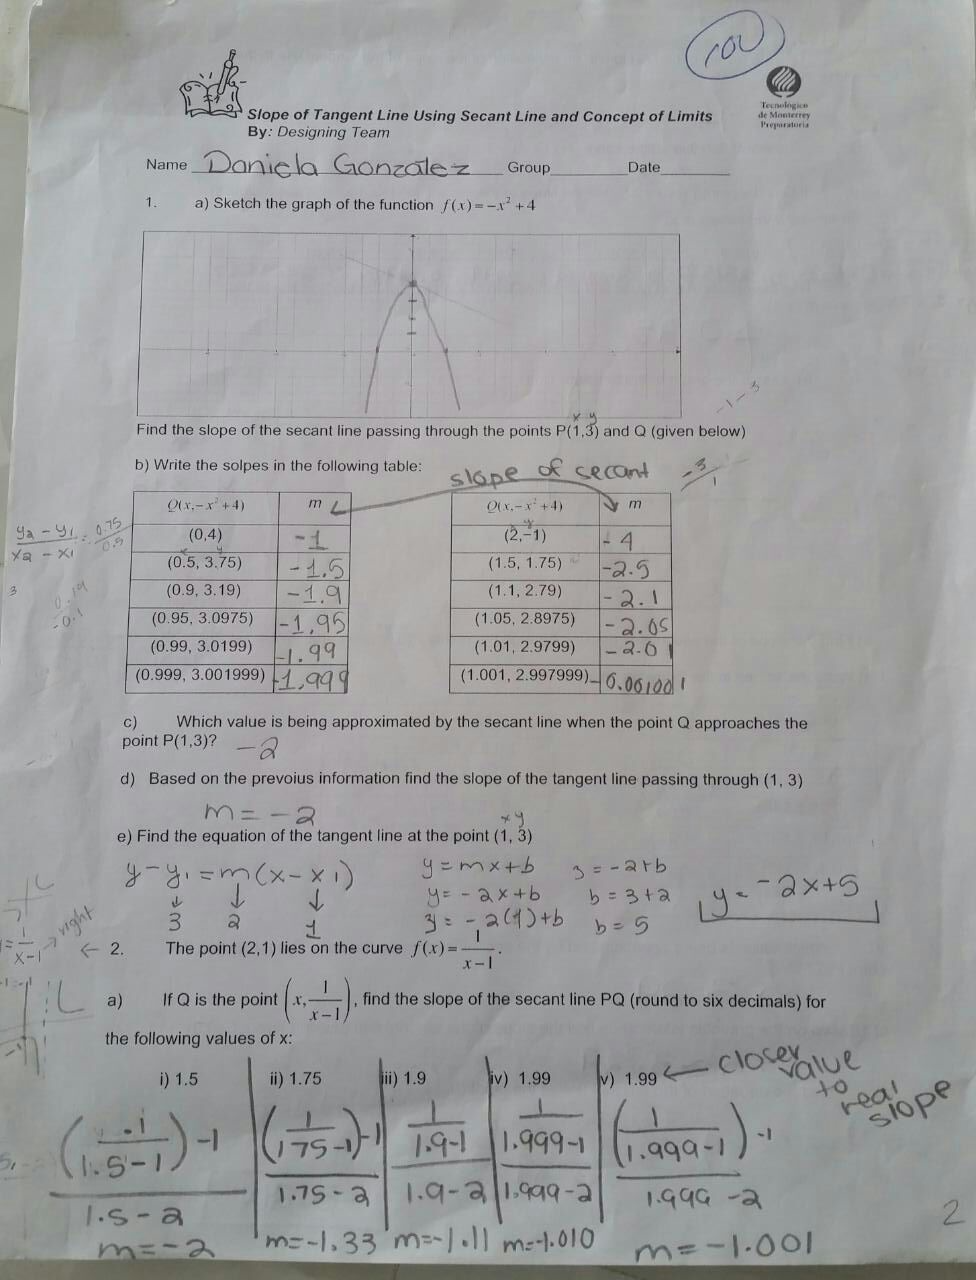 100
Tecnológico
de Monterrey
Preparatoria
Slope of Tangent Line Using Secant Line and Concept of Limits
By: Designing Team
Name Daniela Gonzalez Group Date
1. a) Sketch the graph of the function f(x)=-x²+4
-1-3
x y
Find the slope of the secant line passing through the points P(1,3) and Q (given below)
b) Write the solpes in the following table:
slope of secant
-3/1
Q(x,-x²+4) m
(0,4) -1
(0.5, 3.75) -1.5
(0.9, 3.19) -1.9
(0.95, 3.0975) -1.95
(0.99, 3.0199) -1.99
(0.999, 3.001999) -1.999
Q(x,-x²+4) m
(2,-1) -4
(1.5, 1.75) -2.5
(1.1, 2.79) -2.1
(1.05, 2.8975) -2.05
(1.01, 2.9799) -2.01
(1.001, 2.997999) -0.001001
y2 - y1 = 0.75
x2 - x1 0.5
3
0.19
-0.1
c) Which value is being approximated by the secant line when the point Q approaches the
point P(1,3)? -2
d) Based on the prevoius information find the slope of the tangent line passing through (1, 3)
m = -2
x y
e) Find the equation of the tangent line at the point (1, 3)
y-y1 = m(x-x1)
3 2 1
y = mx+b
y = -2x+b
3 = -2(1)+b
3 = -2+b
b = 3+2
b = 5
y = -2x+5
right
= 1/x-1
← 2. The point (2,1) lies on the curve f(x)=1/x-1.
a) If Q is the point (x, 1/x-1), find the slope of the secant line PQ (round to six decimals) for
the following values of x:
i) 1.5 ii) 1.75 iii) 1.9 iv) 1.99 v) 1.99 ← closer value to real slope
(.1/1.5-1)-1 (1/1.75-1)-1 1/1.9-1 1/1.999-1 (1/1.999-1)-1
1.5-2 1.75-2 1.9-2 1.999-2 1.999-2
m=-2 m=-1.33 m=-1.11 m=-1.010 m=-1.001
2